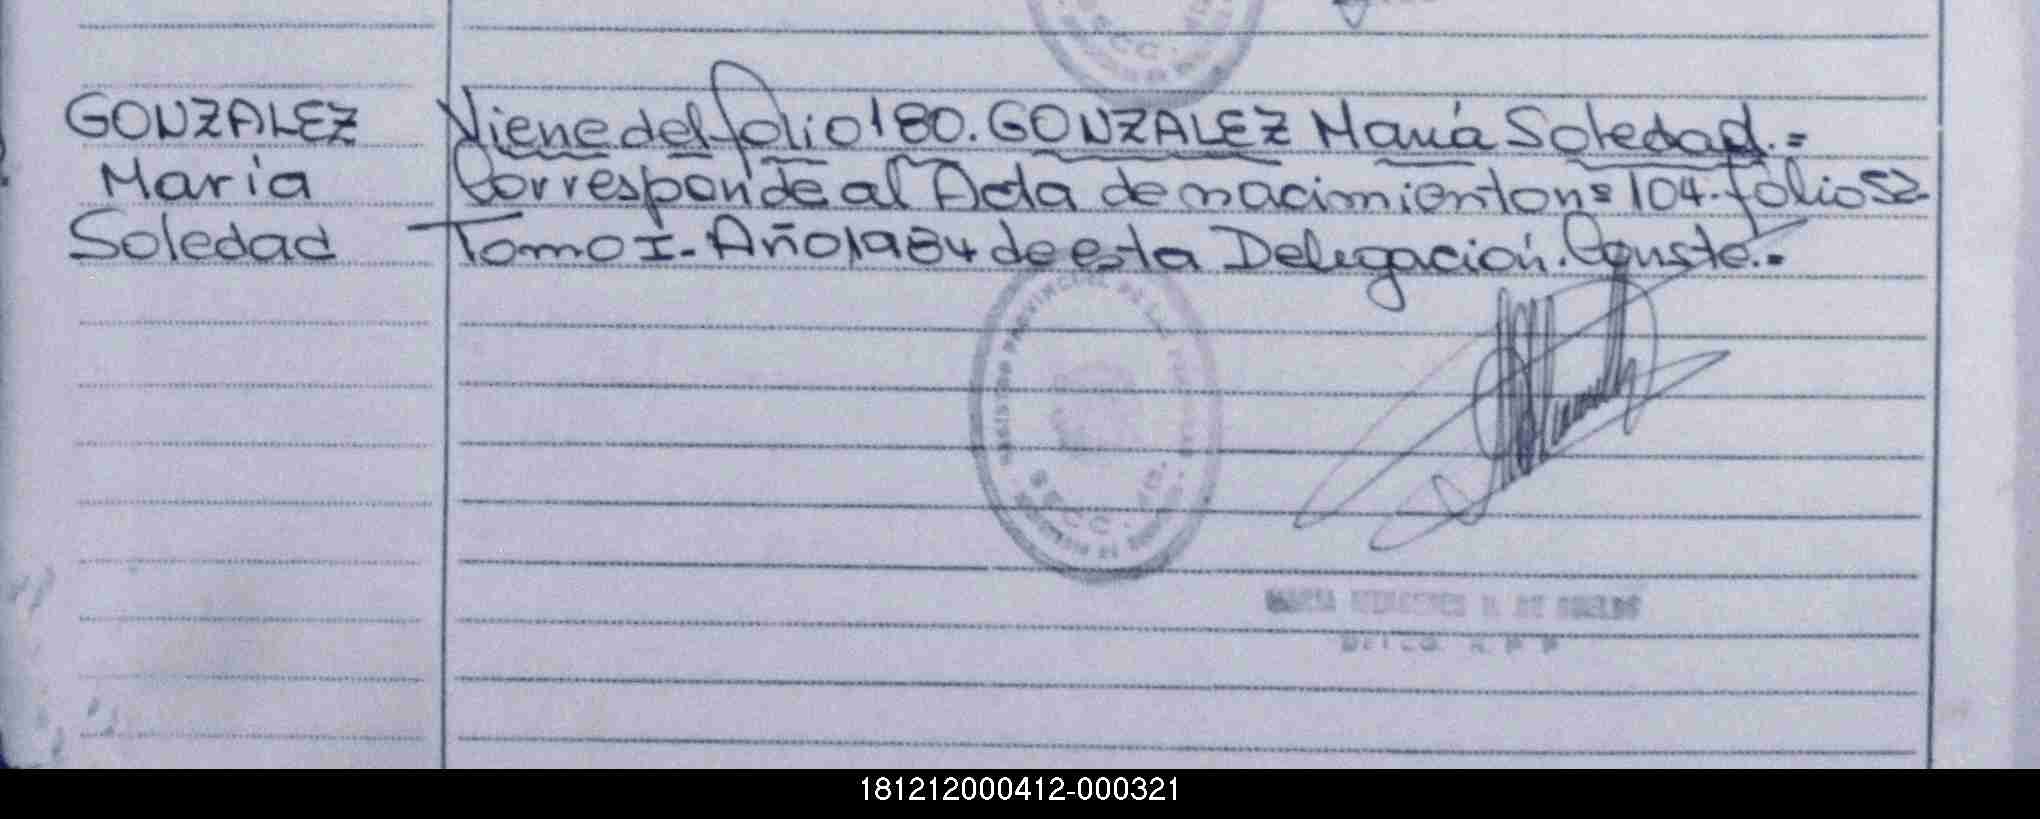 GONZALEZ
Maria
Soledad
Viene del folio 180. GONZALEZ María Soledad.=
Corresponde al Acta de nacimiento nº 104. folio 52
Tomo I. Año 1984 de esta Delegación. Conste.=
REGISTRO PROVINCIAL DE LAS PERSONAS
MARIA DE
181212000412-000321